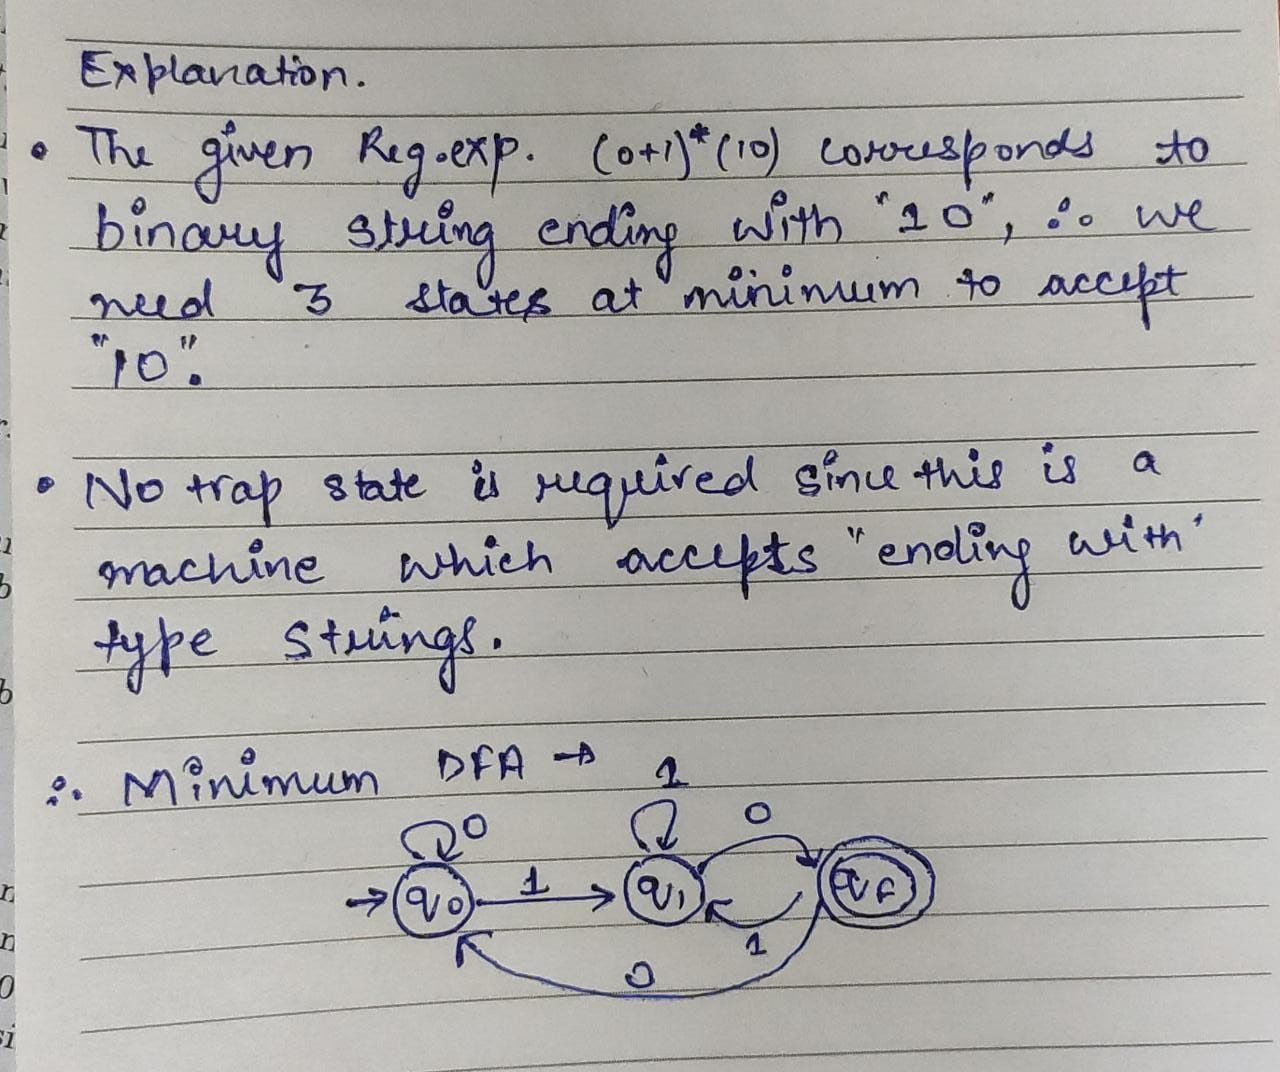 Explanation.
• The given Reg.exp. (0+1)*(10) corresponds to
binary string ending with "10", ∴ we
need 3 states at minimum to accept
"10".
• No trap state is required since this is a
machine which accepts "ending with'
type strings.
∴ Minimum DFA →
1
0
0
q0
1
q1
qf
1
0